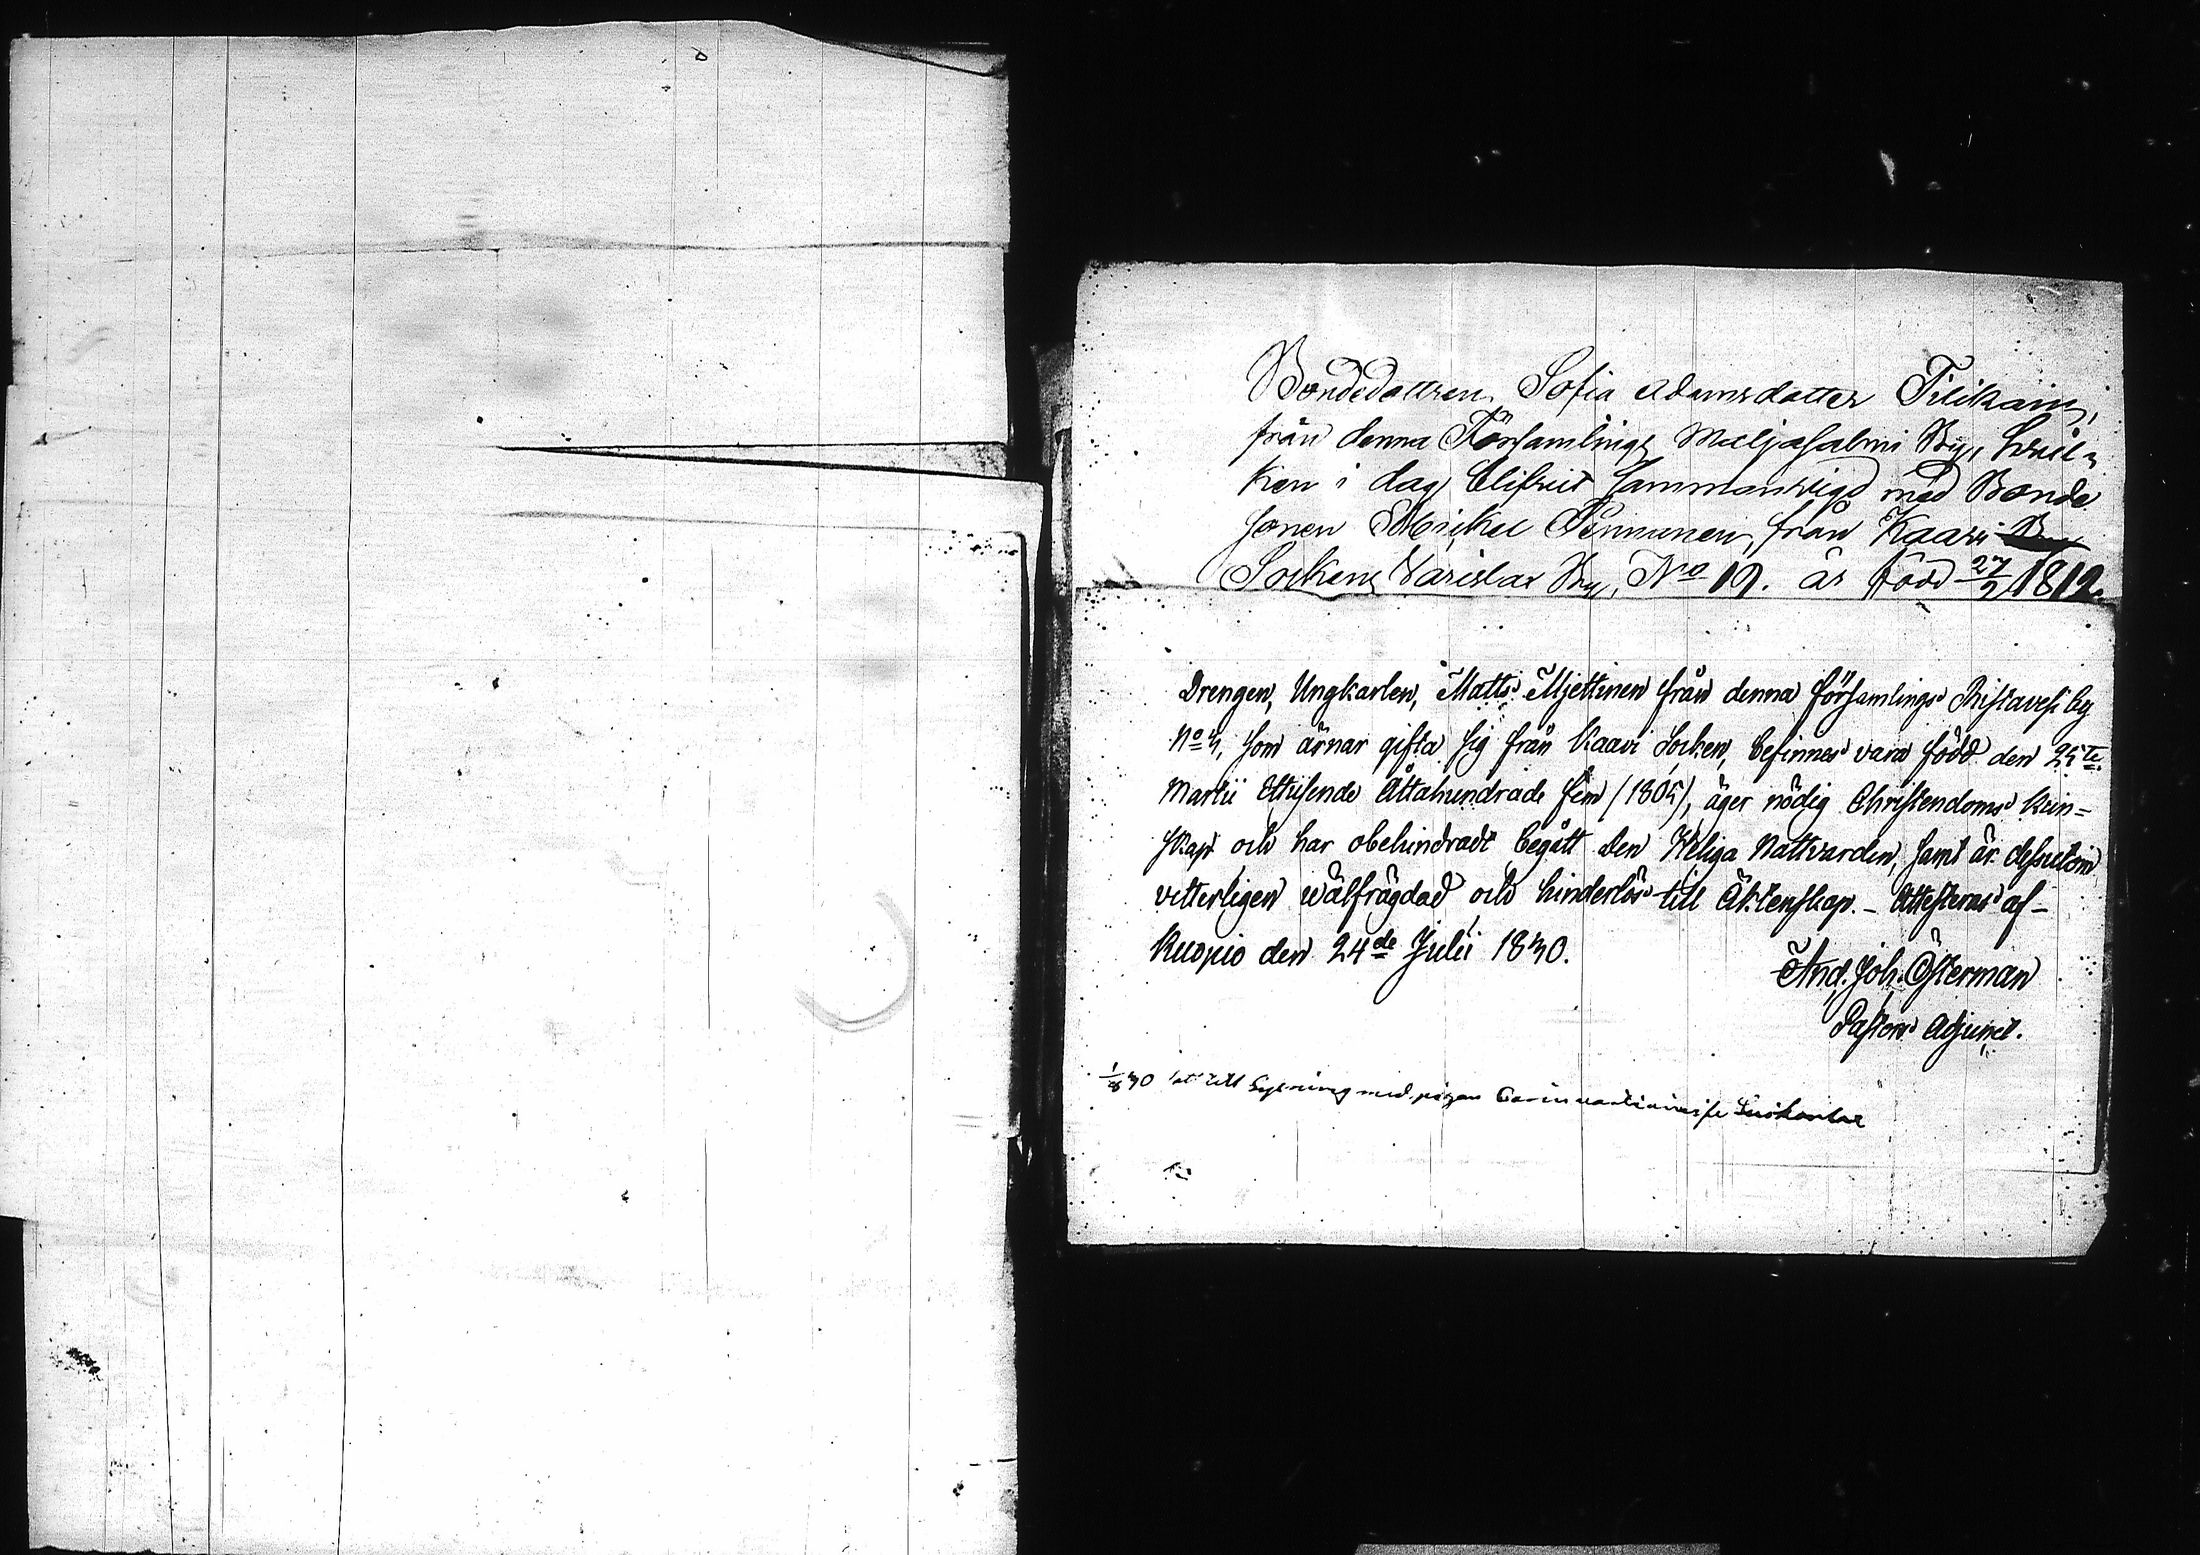 Bondedottren Sofia Adamsdotter Tilikain,
från denna Församlings Maljasalmi By, hvil-
ken i dag blifvit Sammanvigd med Bonde
Sonen Mickel Pennunen, från Kaavi
Sockens Varislax By, No 12. är född 27/2 1812.
Drengen, Ungkarlen, Matts Mjettinen från denna församlings Ristavesi by
No 3, som ärnar gifta sig från Kaavi Socken, befinnes vara född den 25te
Martii Ettusende Åttahundrade fem (1805), äger nödig Christendoms kun-
skap och har obehindradt begått den Heliga Nattvarden, samt är dessutom
vitterligen wälfrägdad och hinderlös till Äktenskap. - Attesteras af -
Kuopio den 24de Julii 1830.
And. Joh. Österman
Pastors Adjunct.
1/8 30 till Lysning med pigan Carin